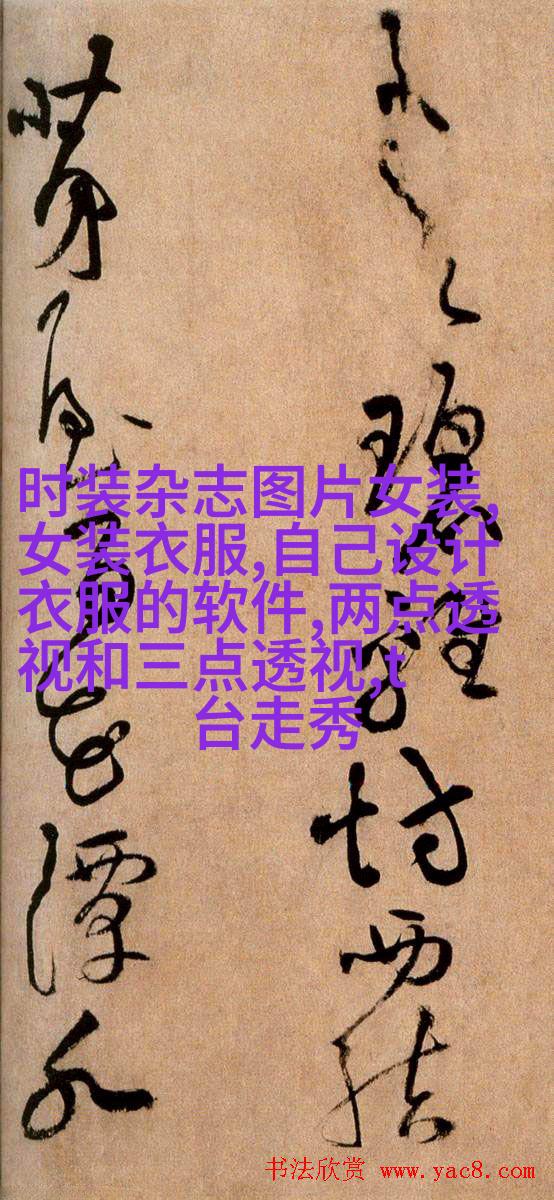 碧雞坊西結
茅屋百花潭水
时装杂志图片女装,
女装衣服,自己设计
衣服的软件,两点透
视和三点透视,t
台走秀
书法欣赏 www.yac8.com